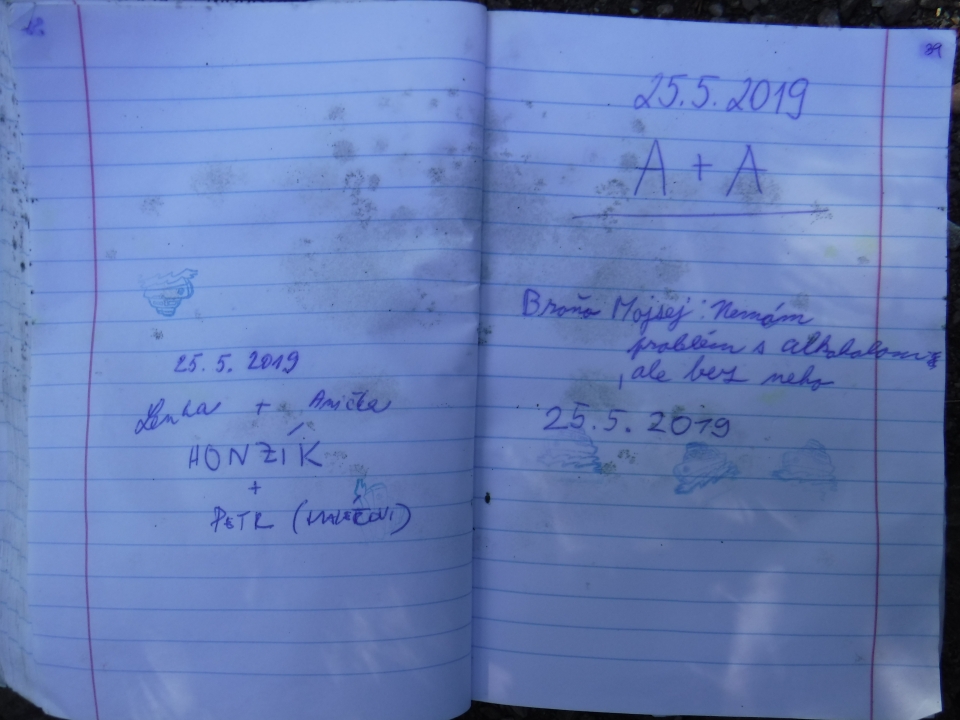 25.5.2019
Lenka + Anička
HONZÍK
+
PETR
39
25.5.2019
A + A
Broňo Mojsej: Nemám
problém s alkoholom
, ale bez neho
25.5.2019